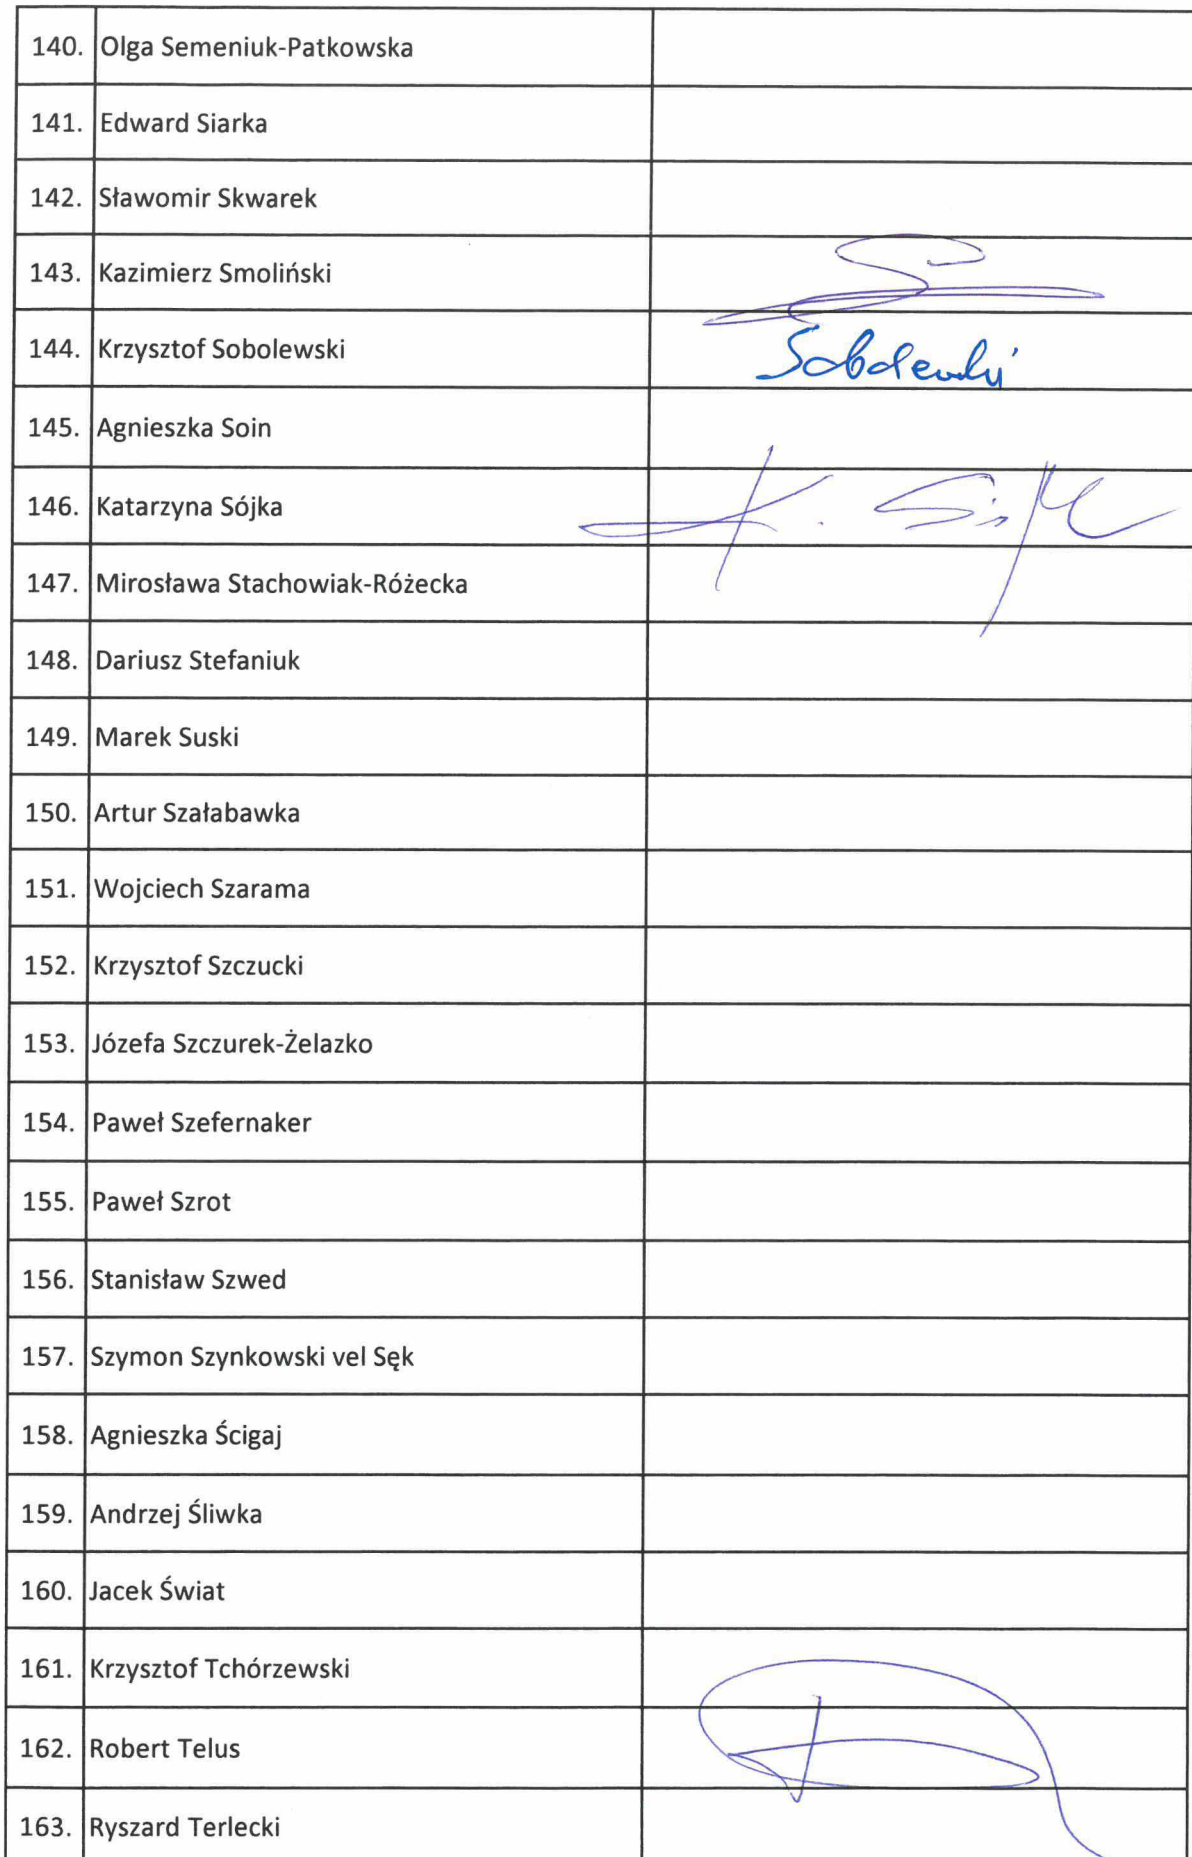 140. Olga Semeniuk-Patkowska
141. Edward Siarka
142. Sławomir Skwarek
143. Kazimierz Smoliński
144. Krzysztof Sobolewski Sobolewski
145. Agnieszka Soin
146. Katarzyna Sójka K. Sójka
147. Mirosława Stachowiak-Różecka
148. Dariusz Stefaniuk
149. Marek Suski
150. Artur Szałabawka
151. Wojciech Szarama
152. Krzysztof Szczucki
153. Józefa Szczurek-Żelazko
154. Paweł Szefernaker
155. Paweł Szrot
156. Stanisław Szwed
157. Szymon Szynkowski vel Sęk
158. Agnieszka Ścigaj
159. Andrzej Śliwka
160. Jacek Świat
161. Krzysztof Tchórzewski
162. Robert Telus
163. Ryszard Terlecki